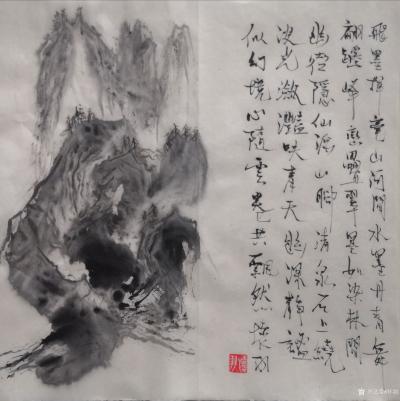 飛墨揮毫山河間水墨丹青舞
翩躚峰巒疊翠墨如染林間
幽徑隱仙山腳清泉石上繞
波光瀲灩映青天幽深靜謐
似幻境心隨雲卷共飄然